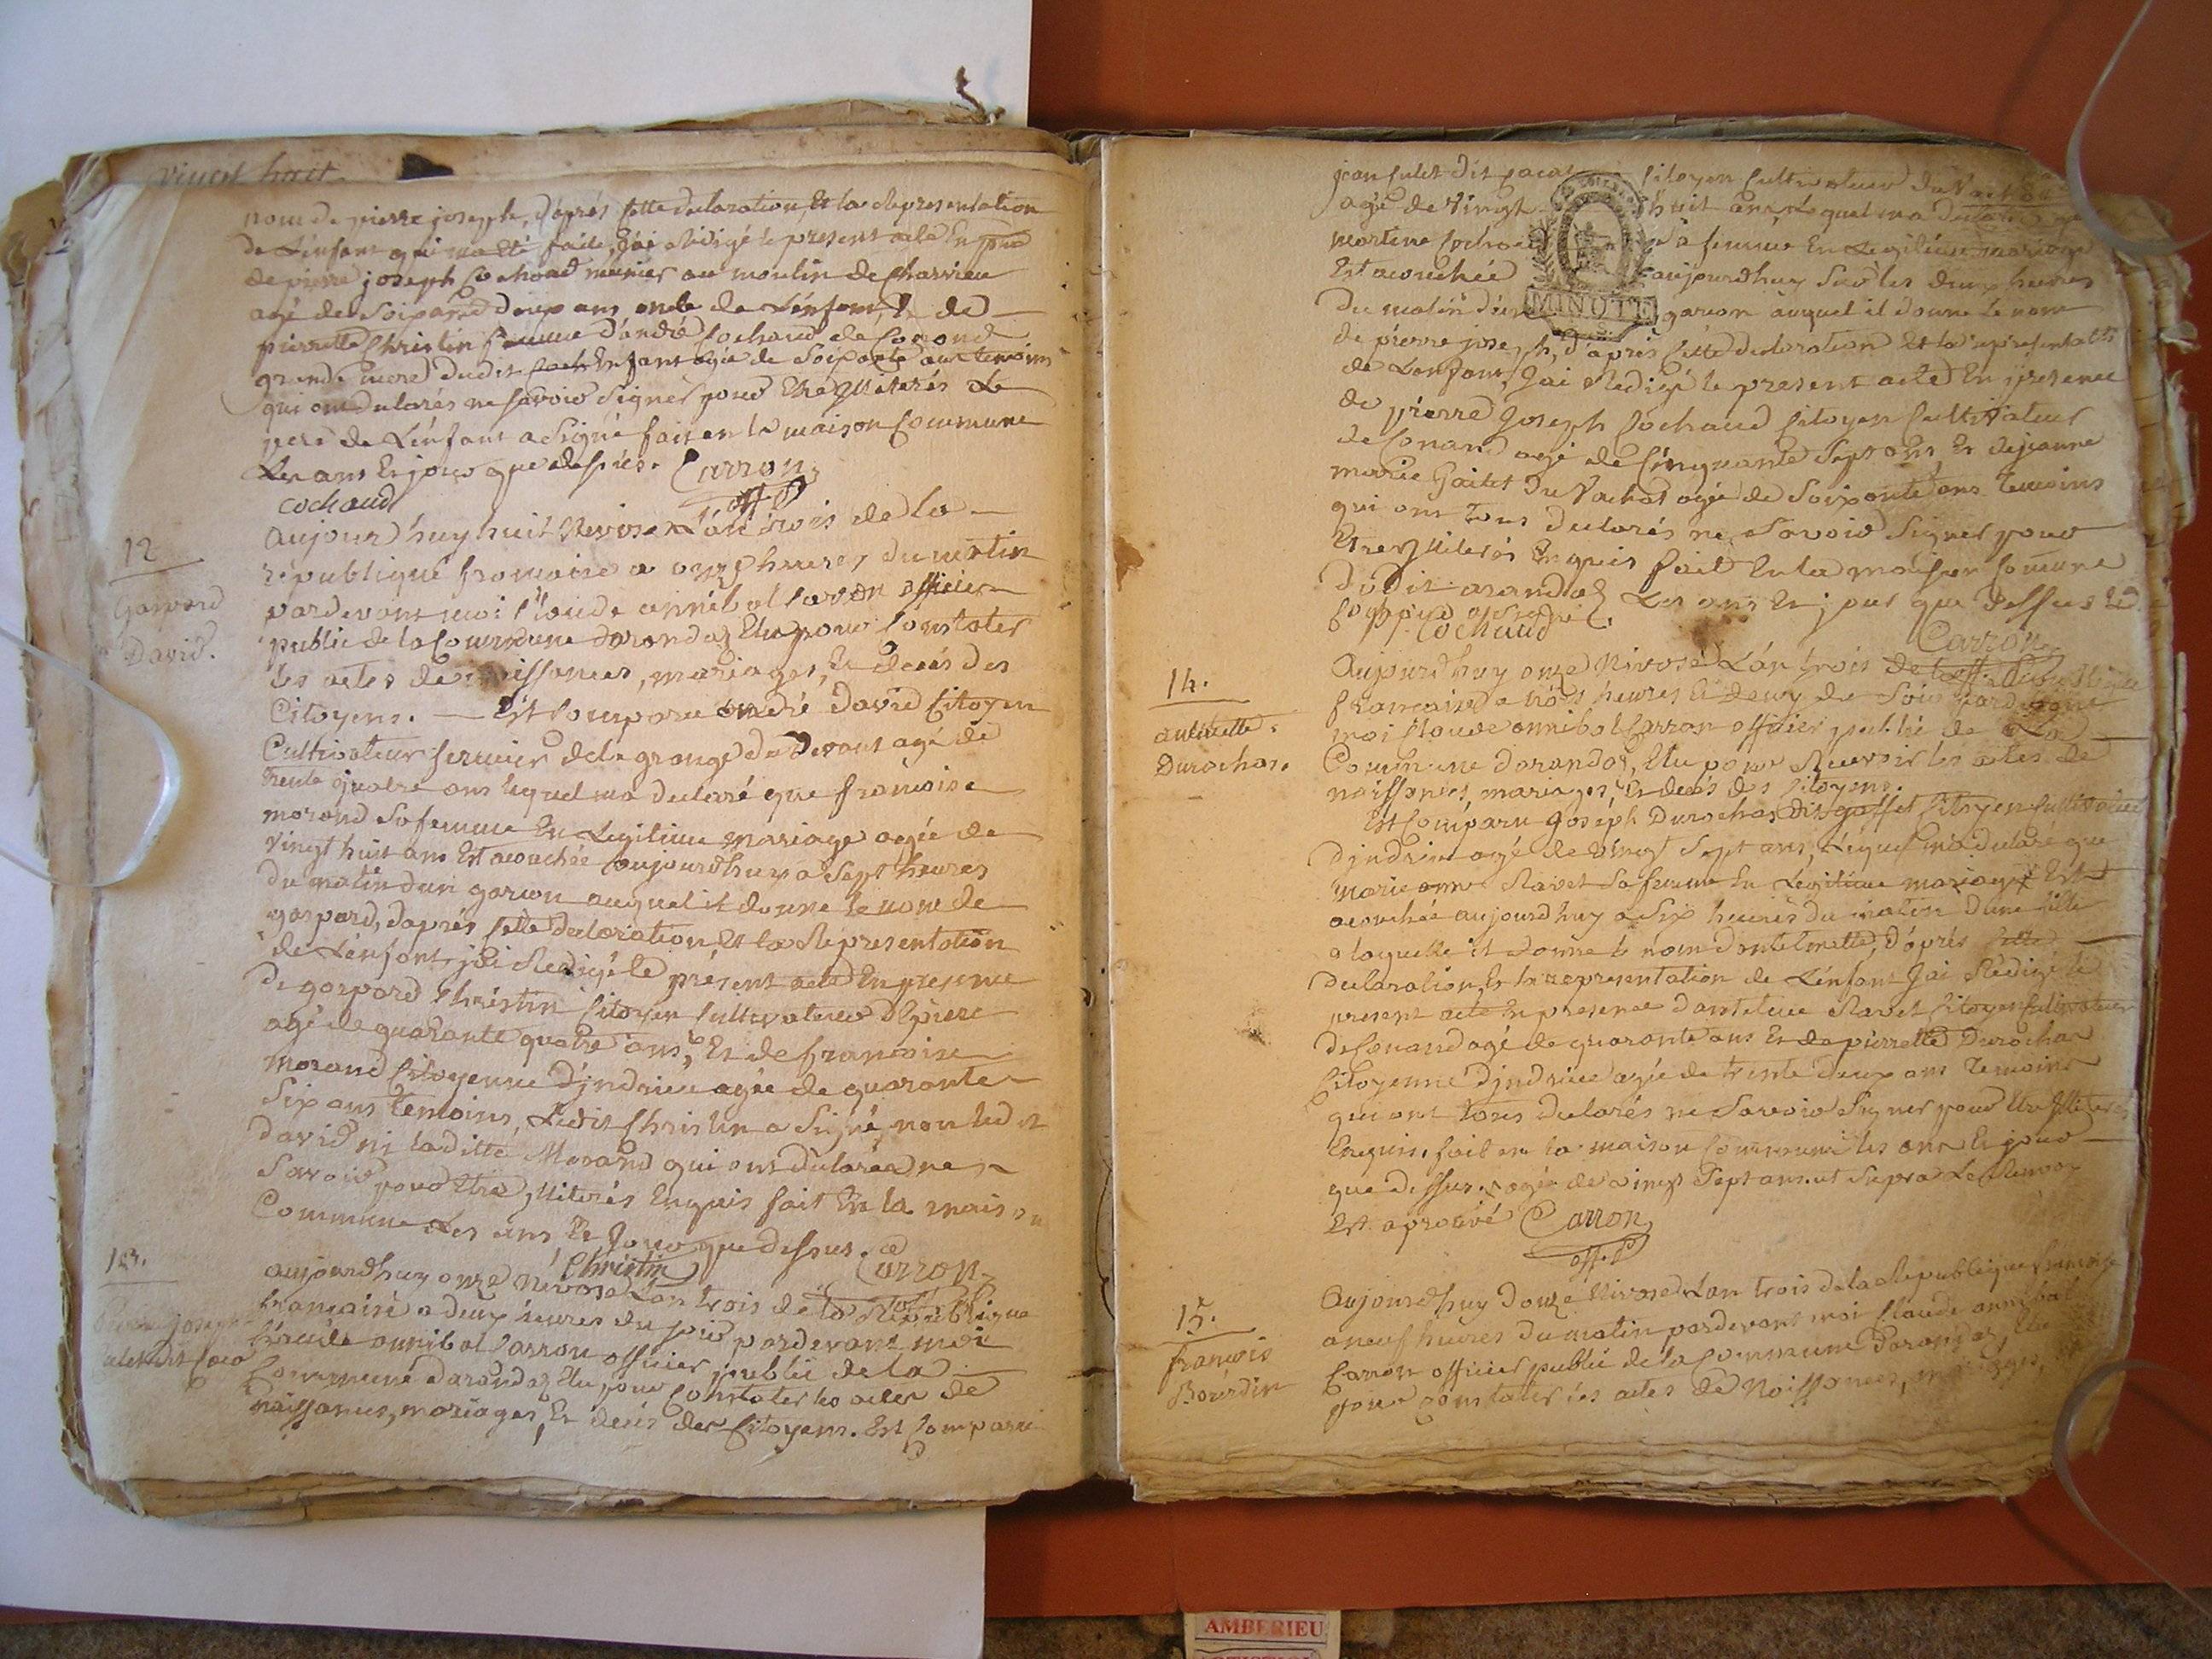 vingt huit
nom de pierre joseph, d'après cette declaration, Et la Representation
de L'enfant qui ma Eté faite, J'ai Redigé le present acte En pnce
de pierre joseph Cochoud munier au moulin de Charvieu
agé de Soixante deux ans oncle de L'enfant, Et de
pierrette Christin femme d'andré Cochaud de Conand
grande mere dudit Enfant agée de Soixante ans temoins
qui ont declarés ne Savoir Signer pour Etre jlliterés Le
pere de L'enfant a Signé fait en la maison Commune
Les ans Et jour que dessus. Carron
cochaud off. P
12
Gaspard
David.
Aujourd'huy huit Nivose L'an trois de la
republique francaise a onze heures du matin
pardevant moi Claude annibal Carron officier
public de la Commune darandas Elu pour Constater
les actes de naissances, mariages, Et decés des
Citoyens. Est Comparu andré David Citoyen
Cultivateur fermier de la grange de Devant agé de
trente quatre ans lequel ma declaré que francoise
morand Sa femme En Legitime mariage agée de
vingt huit ans Est acouchée aujourd'huy a Sept heures
du matin dun garcon auquel il donne le nom de
gaspard, d'après cette declaration, Et la Representation
de L'enfant, j'ai Redigé le présent acte En presence
de gaspard Christin Citoyen Cultivateur
agé de quarante quatre ans, Et de francoise
Morand Citoyenne d'jndrieu agée de quarante
Six ans temoins, Ledit Christin a Signé, non led it
David ni ladite Morand qui ont declarés ne
Savoir pour Etre jlliterés Enquis fait En la maison
Commune Les ans Et Jour que dessus.
Christin Carron
off. P
13.
joseph
aujourd'huy onze Nivose L'an trois de la Republique
francaise a deux heures du soir pardevant moi
Claude annibal Carron officier public de la
Commune darandas Elu pour Constater les actes de
naissances, mariages, Et decés des Citoyens. Est Comparu
jean Culet dit Citoyen Cultivateur du Vachat
agé de Vingt huit ans, Lequel ma declaré que
martine Cochaud Sa femme En Legitime mariage
Est acouchée aujourd'huy Sur les deux heures
du matin d'un garcon auquel il donne le nom
MINUTE
de pierre joseph, d'après cette declaration Et la representation
de L'enfant, J'ai Redigé le present acte En presence
de pierre Joseph Cochaud Citoyen Cultivateur
de Conand agé de Cinquante Sept ans Et de jeanne
marie Gaillet du Vachat agée de Soixante ans temoins
qui ont tous declarés ne Savoir Signer pour
Etre jlliterés Enquis fait En la maison Comune
dudit arandas Les ans Et jour que dessus Led.
a Signé.
Cochaud Carron
off. P
14.
antelmette
Durochat.
Aujourd'huy onze Nivose L'an trois de la Republique
francaise a trois heures Et demy de Soir pardevant
moi Claude annibal Carron officier public de La
Commune darandas, Elu pour Recevoir les actes de
naissances, mariages, Et decés des Citoyens.
Est Comparu Joseph Durochat dit Citoyen Cultivateur
Djndrieu agé de vingt Sept ans, Lequel ma declaré que
marie anne Ravet Sa femme En Legitime mariage Est
acouchée aujourd'huy a Six heures du matin d'une fille
a laquelle il donne le nom dantelmette, d'après cette
declaration, Et la representation de L'enfant J'ai Rédigé le
present acte En presence dantelme Ravet Citoyen Cultivateur
de Conand agé de quarante ans Et de pierrette Durochat
Citoyenne d'jndrieu agée de trente deux ans Temoins
qui ont tous declarés ne Savoir Signer pour Etre jlliterés
Enquis, fait en la maison Commune les ans Et jour
que dessus. x agée de vingt Sept ans. ut Supra Le Renvoy
Est aprouvé Carron
off. P
15.
francois
Bourdin
Aujourd'huy Douze Nivose L'an trois de la Republique francaise
a neuf heures du matin pardevant moi Claude annibal
Carron officier public de la Commune Darandas, Elu
pour Constater les actes de Naissances, mariages, Et
AMBERIEU